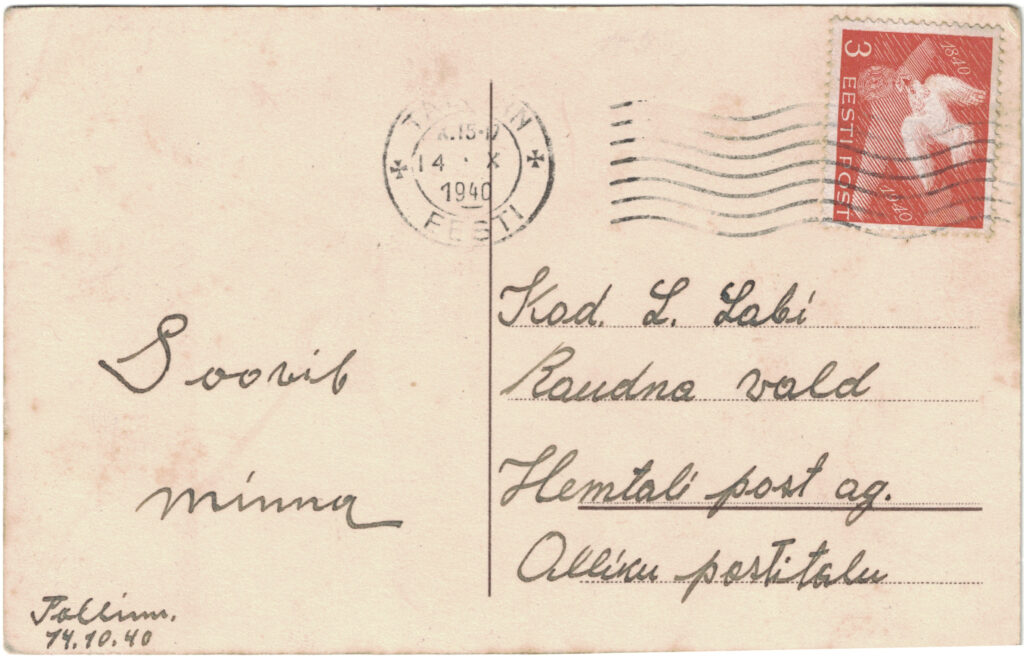 TALLINN
K.15-17
14 · X
1940
EESTI
3 EESTI POST
1840
1940
Kod. L. Labi
Raudna vald
Hemtali post ag.
Alliku postitalu
Soovib
minna
Tallinn.
14.10.40